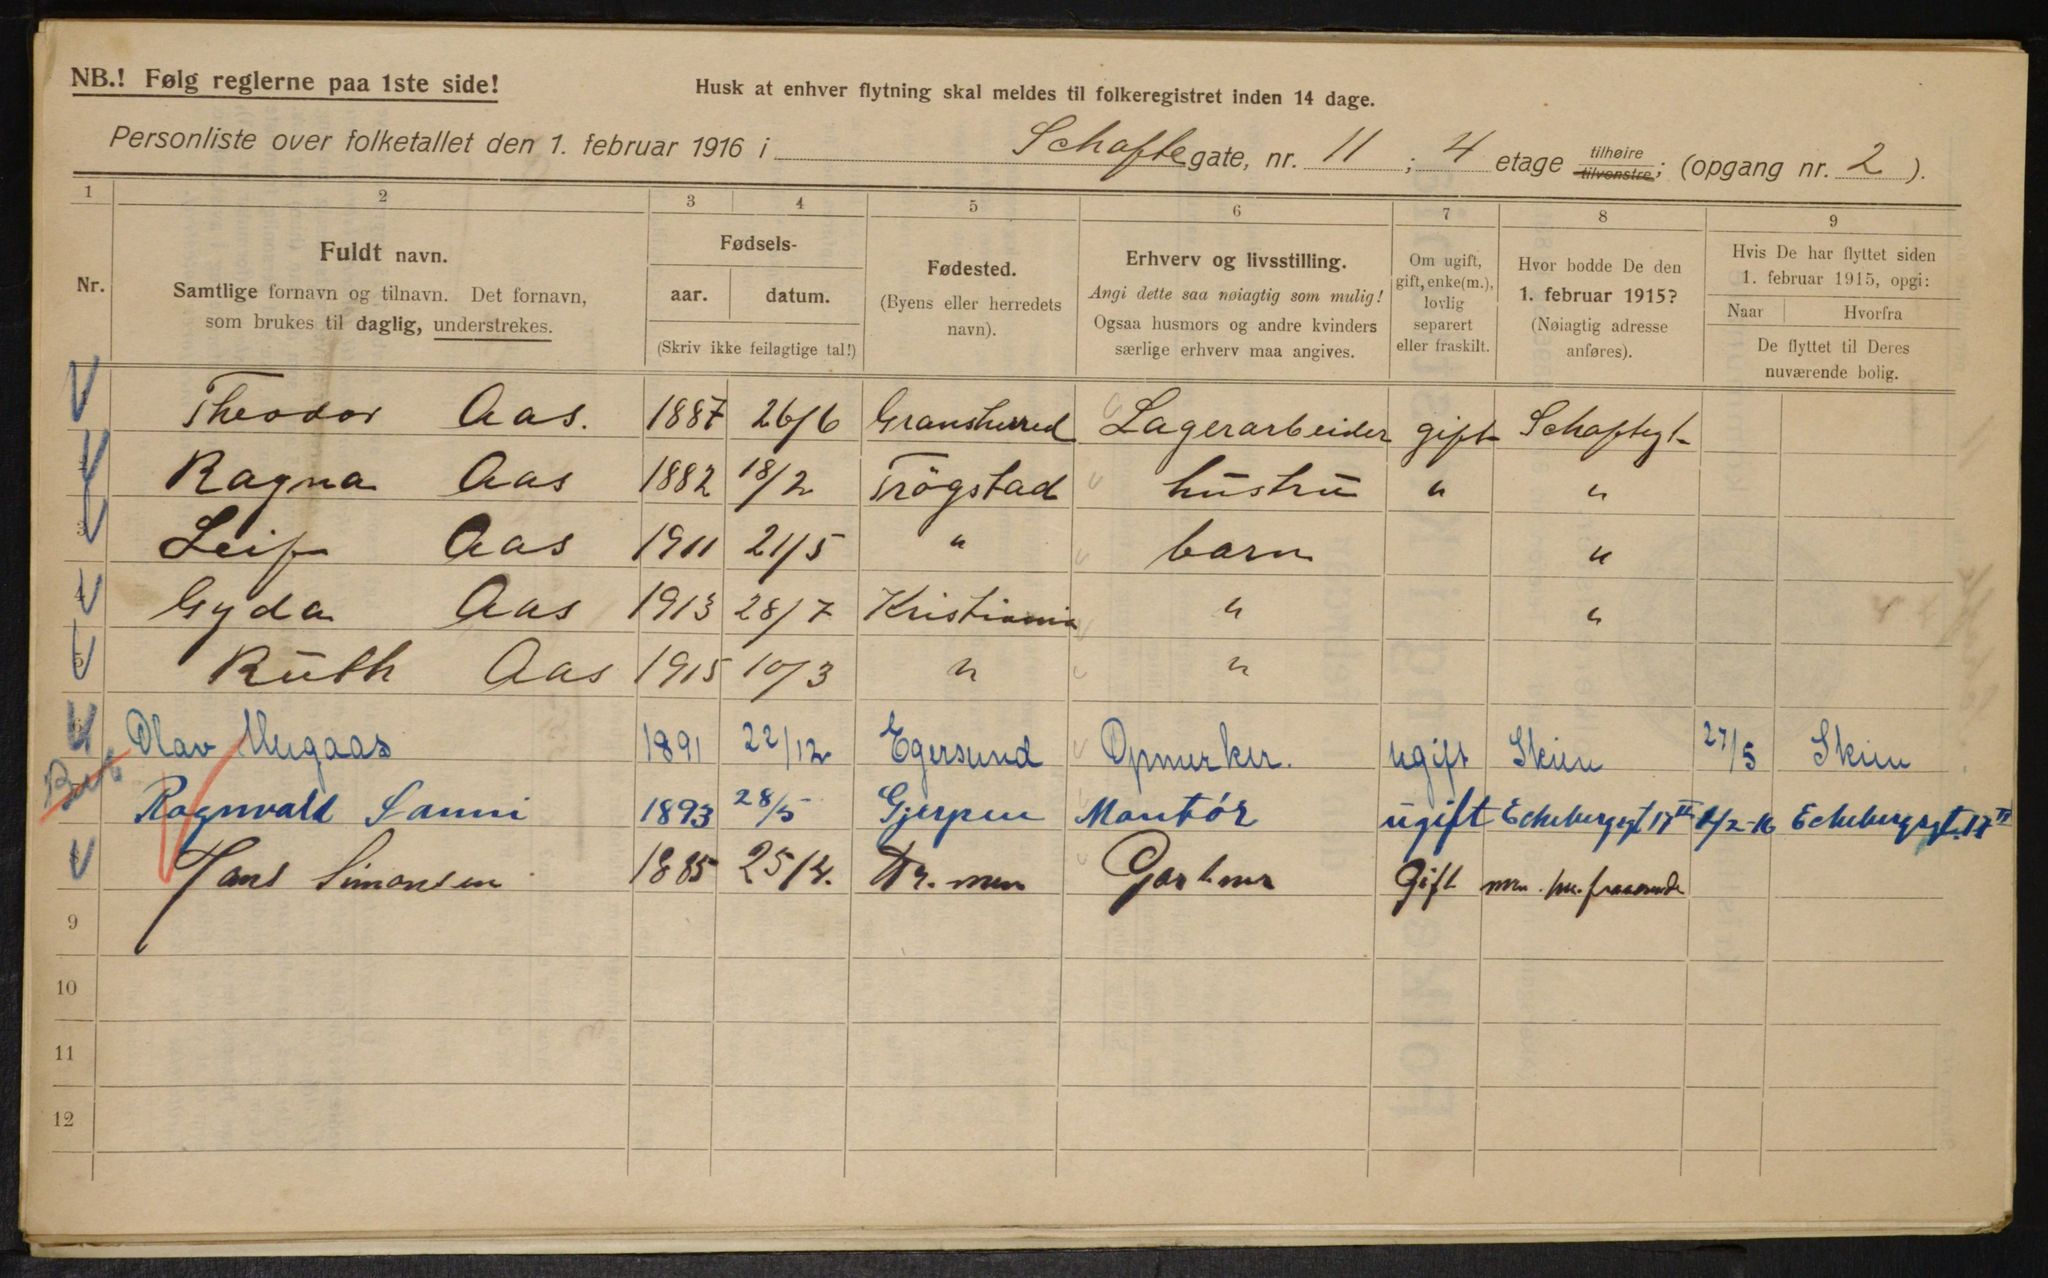 NB.! Følg reglerne paa 1ste side!
Husk at enhver flytning skal meldes til folkeregistret inden 14 dage.
Personliste over folketallet den 1. februar 1916 i Schaftegate, nr. 11 ; 4 etage tilhøire tilvenstre; (opgang nr. 2 ).
1 2 3 4 5 6 7 8 9
Nr.
Fuldt navn.
Samtlige fornavn og tilnavn. Det fornavn,
som brukes til daglig, understrekes.
Fødsels-
aar. datum.
(Skriv ikke feilagtige tal!)
Fødested.
(Byens eller herredets
navn).
Erhverv og livsstilling.
Angi dette saa nøiagtig som mulig!
Ogsaa husmors og andre kvinders
særlige erhverv maa angives.
Om ugift,
gift, enke(m.),
lovlig
separert
eller fraskilt.
Hvor bodde De den
1. februar 1915?
(Nøiagtig adresse
anføres).
Hvis De har flyttet siden
1. februar 1915, opgi:
Naar Hvorfra
De flyttet til Deres
nuværende bolig.
Theodor Aas. 1887 26/6 Gransherred Lagerarbeider gift Schaftegt
Ragna Aas 1882 18/2 Trögstad hustru " "
3 Leif Aas 1911 21/5 " barn "
4 Gyda Aas 1913 28/7 Kristiania " "
5 Ruth Aas 1915 10/3 " "
Olav Mugaas 1891 22/12 Egersund Opmerker. ugift Skien 27/5 Skien
Ragnvald Sanni 1893 28/5 Gjerpen Montör ugift Echebergsgt 17 II 1/2-16 Echebergsgt. 17 II
Hans Simonsen 1885 25/2. Gartner Gift
9
10
11
12